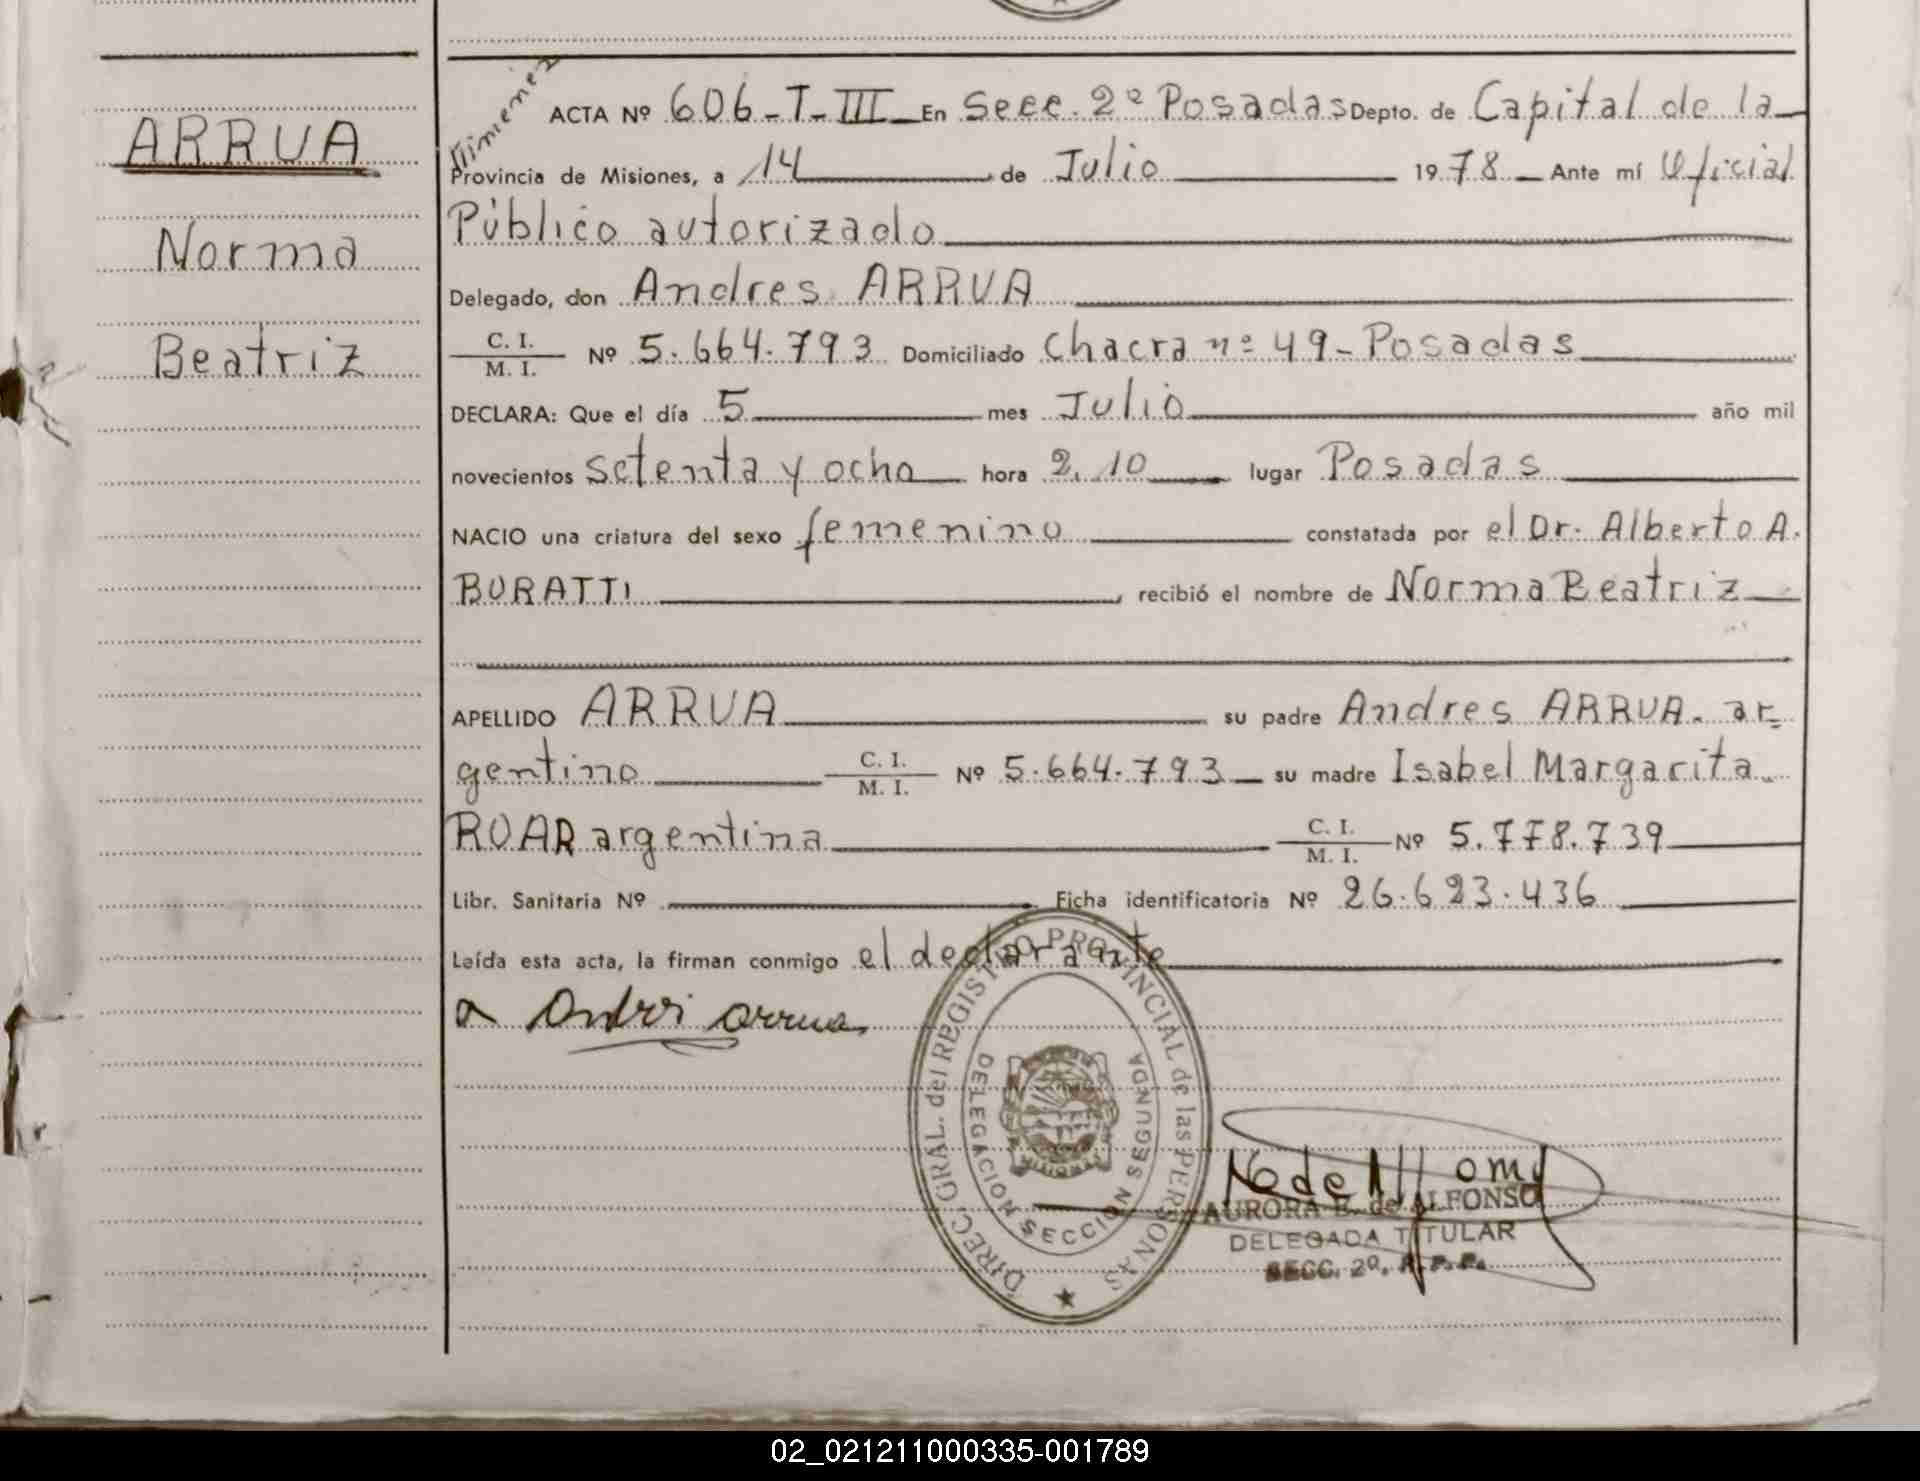 ARRUA
Norma
Beatriz
Jimenez
ACTA Nº 606-T-III En Secc. 2º Posadas Depto. de Capital de la
Provincia de Misiones, a 14 de Julio 1978 Ante mí Oficial
Público autorizado
Delegado, don Andres ARRUA
C. I.
M. I. Nº 5.664.793 Domiciliado Chacra nº 49-Posadas
DECLARA: Que el día 5 mes Julio año mil
novecientos setenta y ocho hora 2.10 lugar Posadas
NACIO una criatura del sexo femenino constatada por el Dr. Alberto A.
BURATTI, recibió el nombre de Norma Beatriz
APELLIDO ARRUA su padre Andres ARRUA. ar=
gentino C. I.
M. I. Nº 5.664.793 su madre Isabel Margarita
ROAR argentina C. I.
M. I. Nº 5.778.739
Libr. Sanitaria Nº Ficha identificatoria Nº 26.623.436
Leída esta acta, la firman conmigo el declarante
a Andrés Arrua
DIREC. GRAL. del REGISTRO PROVINCIAL de las PERSONAS
DELEGACION SECCION SEGUNDA
MISIONES
AURORA E. de ALFONSO
DELEGADA TITULAR
SECC. 2º. R. P. P.
02_021211000335-001789